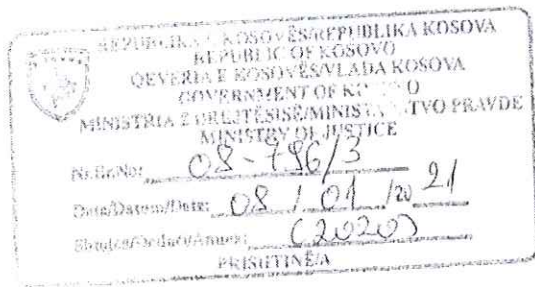 REPUBLIKA E KOSOVËS/REPUBLIKA KOSOVA
REPUBLIC OF KOSOVO
QEVERIA E KOSOVËS/VLADA KOSOVA
GOVERNMENT OF KOSOVO
MINISTRIA E DREJTËSISË/MINISTARSTVO PRAVDE
MINISTRY OF JUSTICE
Nr.Br.No: 08-796/3
Data/Datum/Date: 08 / 01 /20 21
(2020)
PRISHTINË/A